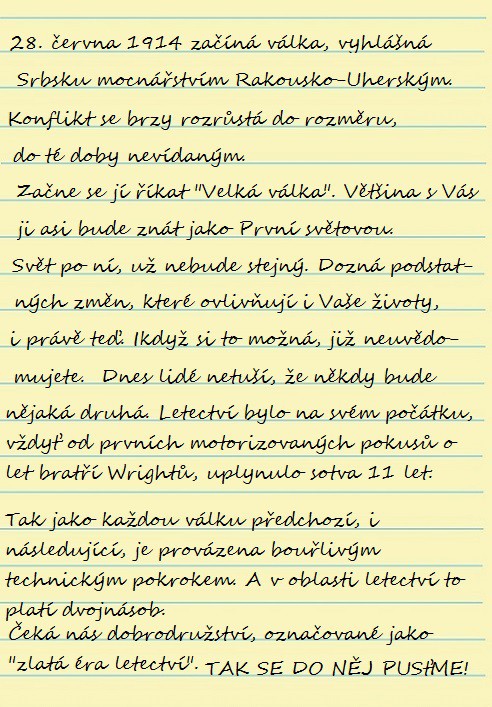 28. června 1914 začíná válka, vyhlášná
Srbsku mocnářstvím Rakousko-Uherským.
Konflikt se brzy rozrůstá do rozměru,
do té doby nevídaným.
Začne se jí říkat "Velká válka". Většina s Vás
ji asi bude znát jako První světovou.
Svět po ní, už nebude stejný. Dozná podstat-
ných změn, které ovlivňují i Vaše životy,
i právě teď. Ikdyž si to možná, již neuvědo-
mujete. Dnes lidé netuší, že někdy bude
nějaká druhá. Letectví bylo na svém počátku,
vždyť od prvních motorizovaných pokusů o
let bratří Wrightů, uplynulo sotva 11 let.
Tak jako každou válku předchozí, i
následující, je provázena bouřlivým
technickým pokrokem. A v oblasti letectví to
platí dvojnásob.
Čeká nás dobrodružství, označované jako
"zlatá éra letectví". TAK SE DO NĚJ PUSťME!